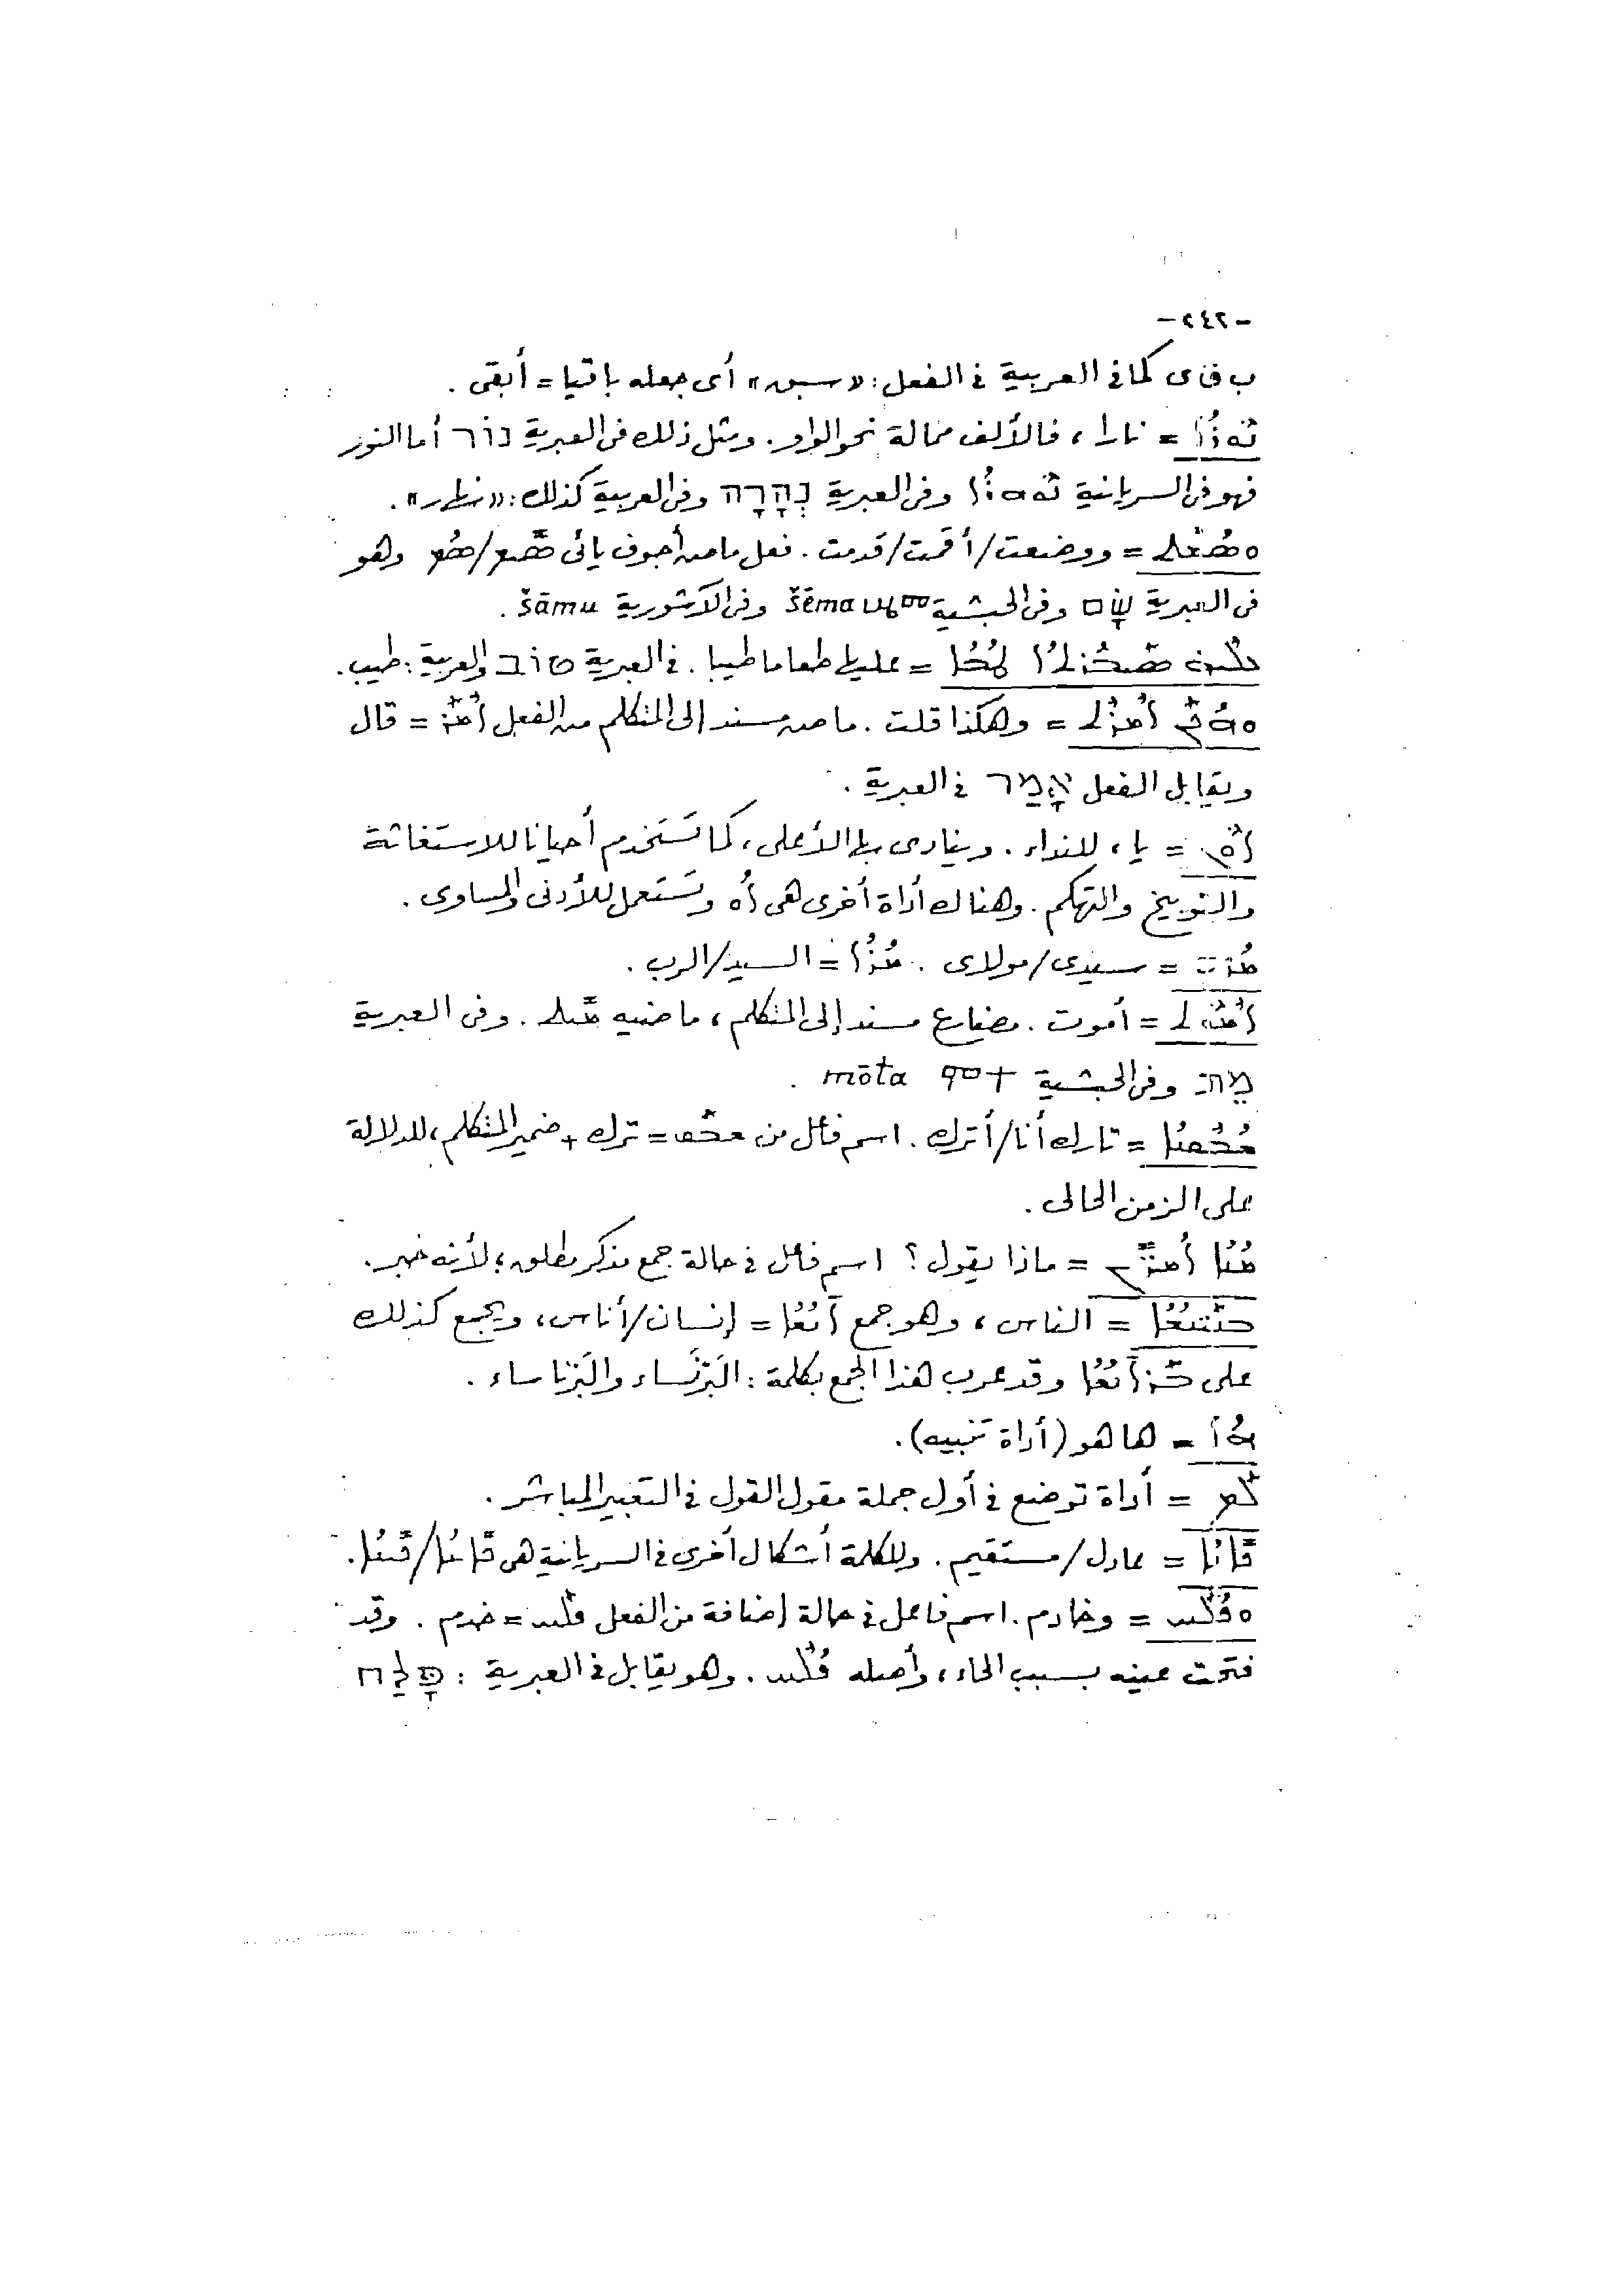 -٢٤٢-
ب ق ى كما فى العربية فى الفعل: «سبق» أى جعله باقيا = أبقى .
ܢܘܪܐ = نارا ، فالألف ممالة نحو الواو . ومثل ذلك فى العبرية נוֹר أما النور
فهو فى السريانية ܢܘܗܪܐ وفى العبرية נְהָרָה وفى العربية كذلك : «نهار» .
ܘܣܡܬ = ووضعت/أقمت/قدمت . فعل ماض أجوف يائى ܣܝܡ/ܣܡ وهو
فى العبرية שָׂם وفى الحبشية šēma ሤመ وفى الآشورية šāmu .
ܥܠܝܗ ܣܝܒܪܬܐ ܛܒܐ = عليها طعاما طيبا . فى العبرية טוֹב والعربية : طيب .
ܘܗܟܢ ܐܡܪܬ = وهكذا قلت . ماض مسند إلى المتكلم من الفعل ܐܡܪ = قال
ويقابل الفعل אָמַר فى العبرية .
ܐܘܢ = يا ، للنداء . وينادى بها الأعلى ، كما تَستَخدم أحيانا للاستغاثة
والتوبيخ والتهكم . وهناك أداة أخرى هى ܐܘ وتَستَعمل للأدنى والمساوى .
ܡܪܝ = سيدى/مولاى . ܡܪܐ = السيد/الرب .
ܐܡܘܬ = أموت . مضارع مسند إلى المتكلم ، ماضيه ܡܝܬ . وفى العبرية
מֵת وفى الحبشية ሞተ mōta .
ܫܒܩܢܐ = تارك أنا/أترك . اسم فاعل من ܫܒܩ = ترك + ضمير المتكلم ، للدلالة
على الزمن الحالى .
ܡܢܐ ܐܡܪܝܢ = ماذا يقول ؟ اسم فاعل فى حالة جمع مذكر مطلق ؛ لأنه خبر .
ܒܢܝܢܫܐ = الناس ، وهو جمع ܐܢܫܐ = إنسان/أناس ، ويجمع كذلك
على ܒܪܐܢܫܐ وقد عرب هذا الجمع بكلمة : البَرْنَساء والبَرْناساء .
ܗܐ = ها هو (أداة تنبيه) .
ܠܡ = أداة توضع فى أول جملة مقول القول فى التعبير المباشر .
ܟܐܢܐ = عادل/مستقيم . وللكلمة أشكال أخرى فى السريانية هى ܟܐܝܢܐ/ܟܝܢܐ .
ܘܦܠܚ = وخادم . اسم فاعل فى حالة إضافة من الفعل ܦܠܚ = خدم . وقد
فتحت عينه بسبب الحاء ، وأصله ܦܠܚ . وهو يقابل فى العبرية : פָּלַח